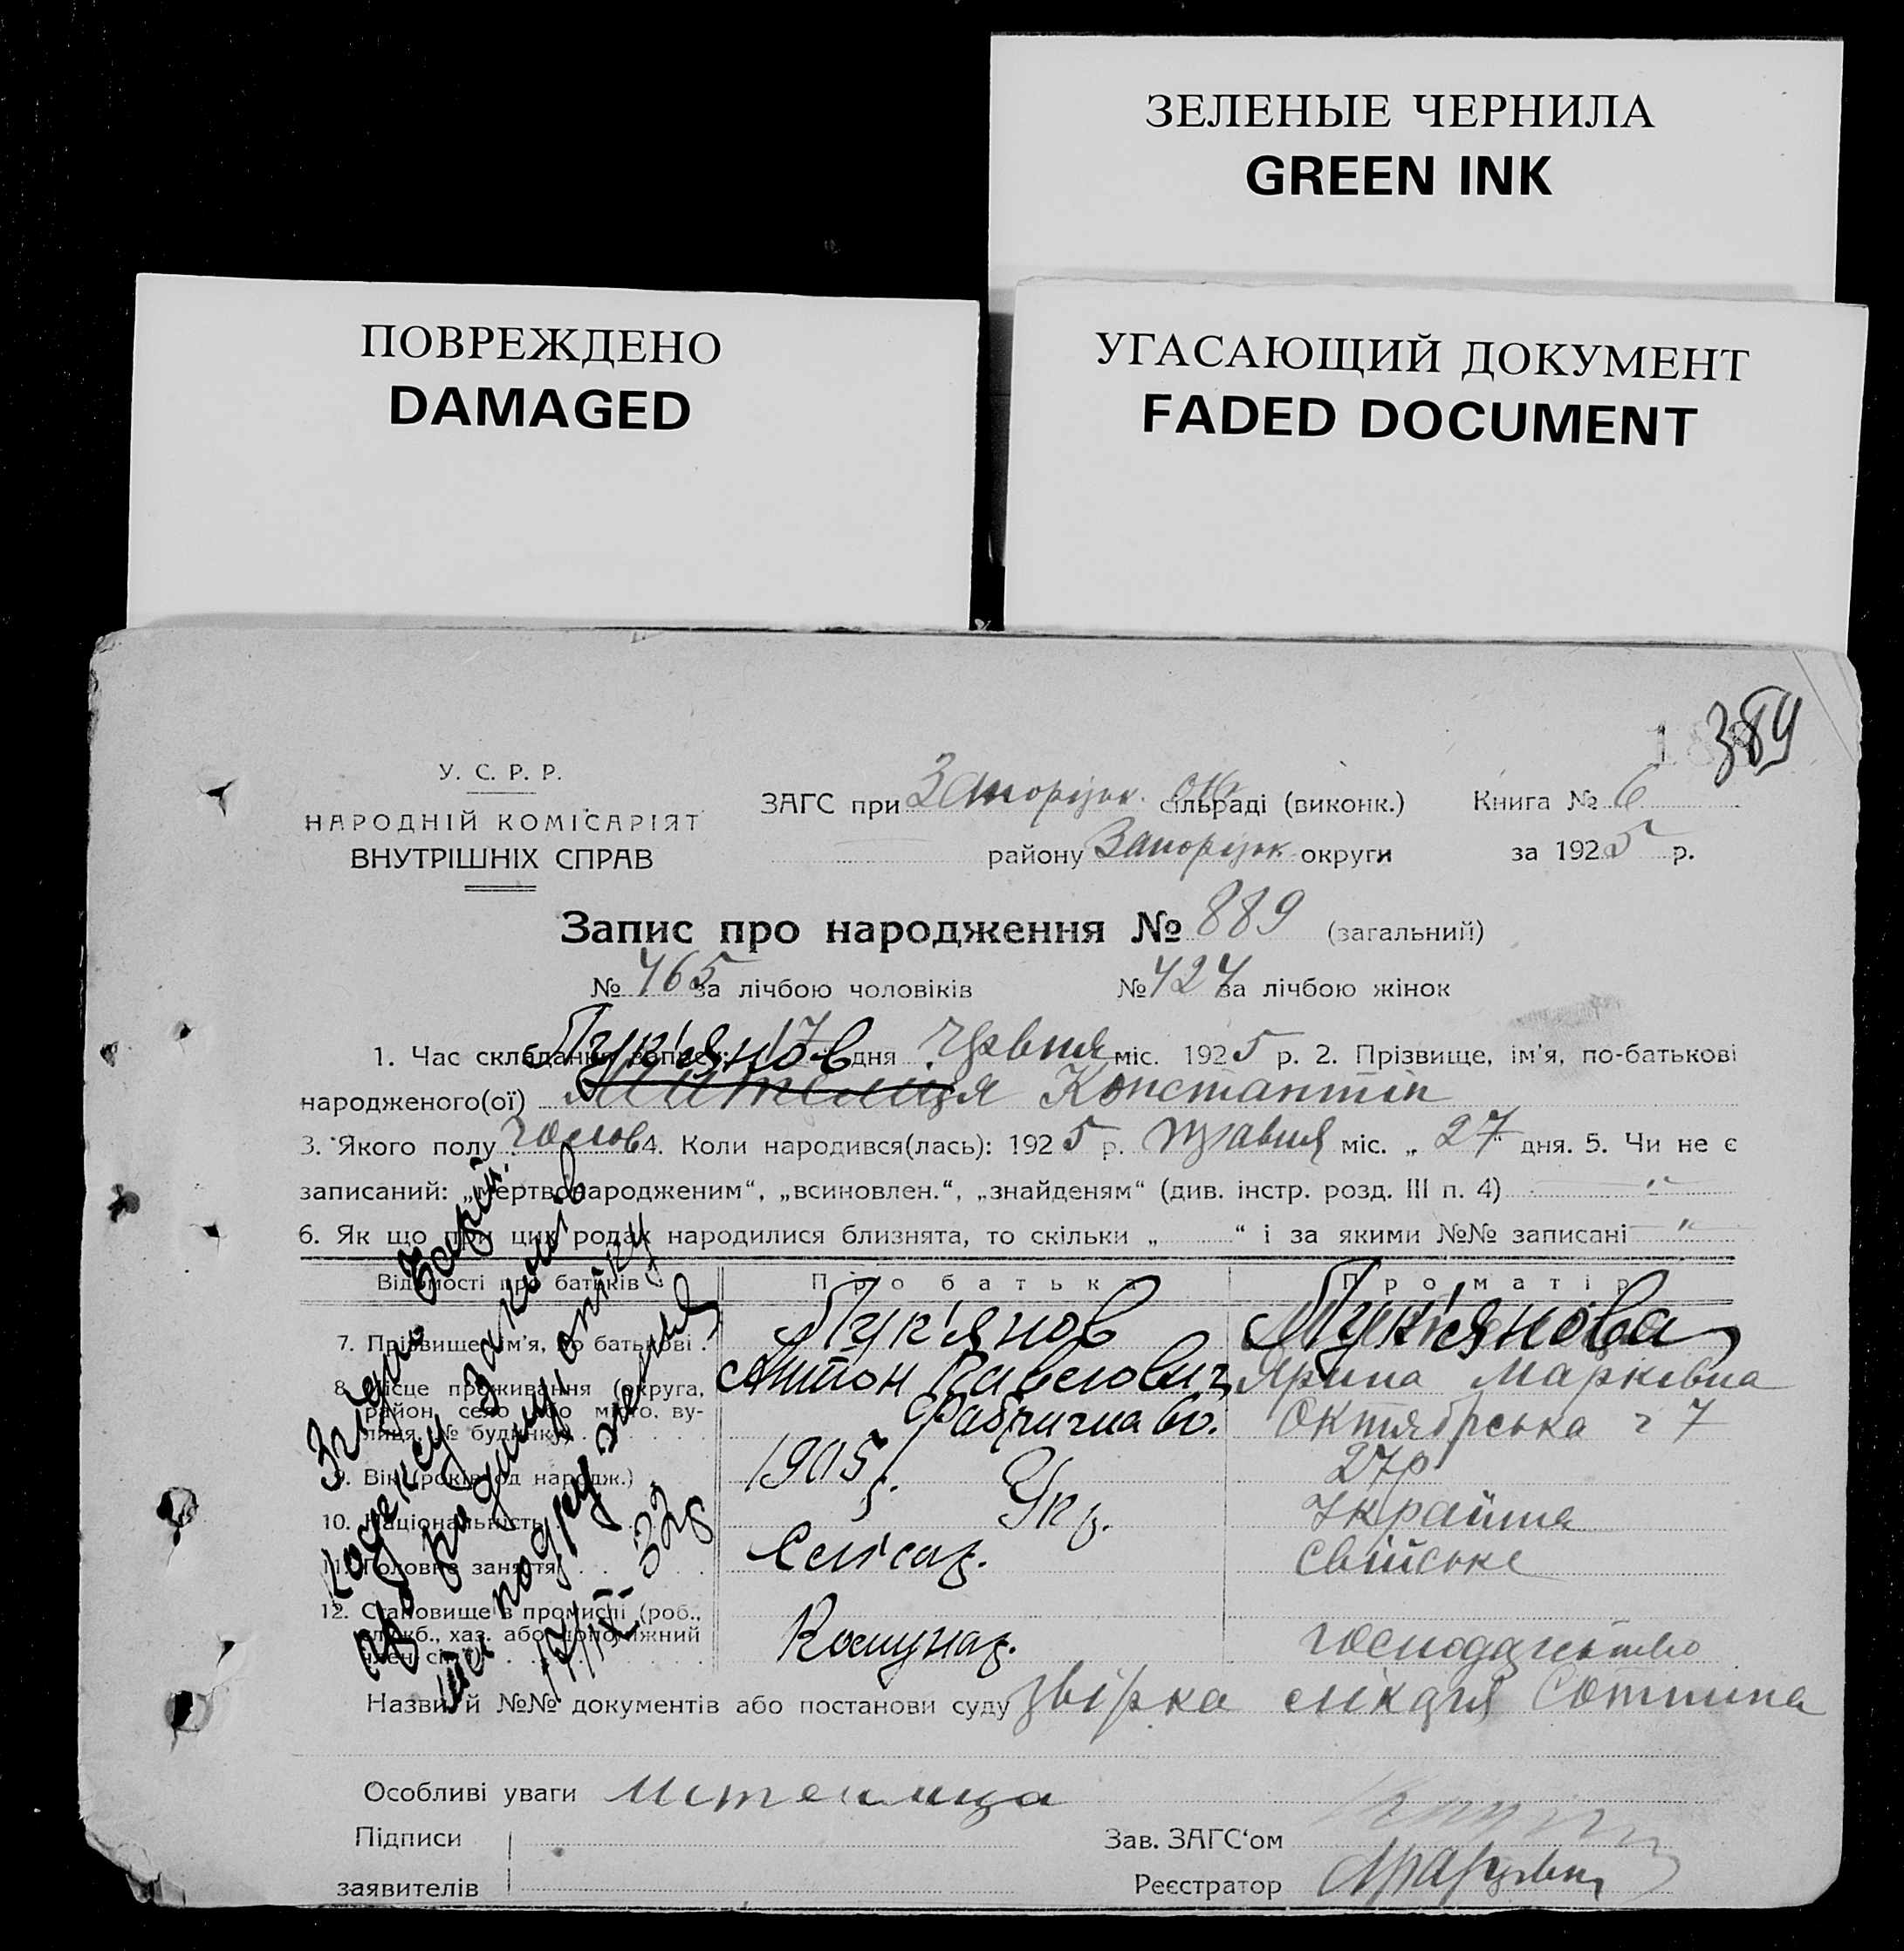 ЗЕЛЕНЫЕ ЧЕРНИЛА
GREEN INK
ПОВРЕЖДЕНО
DAMAGED
УГАСАЮЩИЙ ДОКУМЕНТ
FADED DOCUMENT
389
У. С. Р. Р.
НАРОДНІЙ КОМІСАРІЯТ
ВНУТРІШНІХ СПРАВ
ЗАГС при Запоріжж. окр сільраді (виконк.) Книга № 6
району Запоріжж округи за 1925 р.
Запис про народження № 889 (загальний)
№ 465 за лічбою чоловіків № 424 за лічбою жінок
Лук'янов
1. Час складання запису: 17 дня Червня міс. 1925 р. 2. Прізвище, ім'я, по-батькові
народженого(ої) Мителиця Константін
3. Якого полу чолов 4. Коли народився(лась): 1925 р. травня міс. „27" дня. 5. Чи не є
записаний: „мертвонародженим“, „всиновлен.“, „знайденям“ (див. інстр. розд. III п. 4) "
6. Як що при цих родах народилися близнята, то скільки „ “ і за якими №№ записані "
Відомості про батьків Про батька Про матір
7. Прізвище, ім'я, по батькові Лук'янов Лук'янова
Антон Павелович Ярина Марківна
8. Місце проживання (округа, район, село або місто, вулиця, № будинку) Фабрична 60. Октябрська ч 7
9. Вік (років од народж.) 1905р. 27р
10. Національність Укр. Україніна
11. Головне заняття Слюсар. Свійське
12. Становище в промислі (роб., служб., хаз. або допоміжний член сім'ї) Комунар. господарство
Згідно Кодексу законів
про родину, опіку
та подружжя
17/IX-32р
Назви й №№ документів або постанови суду звірка
Особливі уваги Мителиця
Підписи
заявителів
Зав. ЗАГС‘ом
Реєстратор